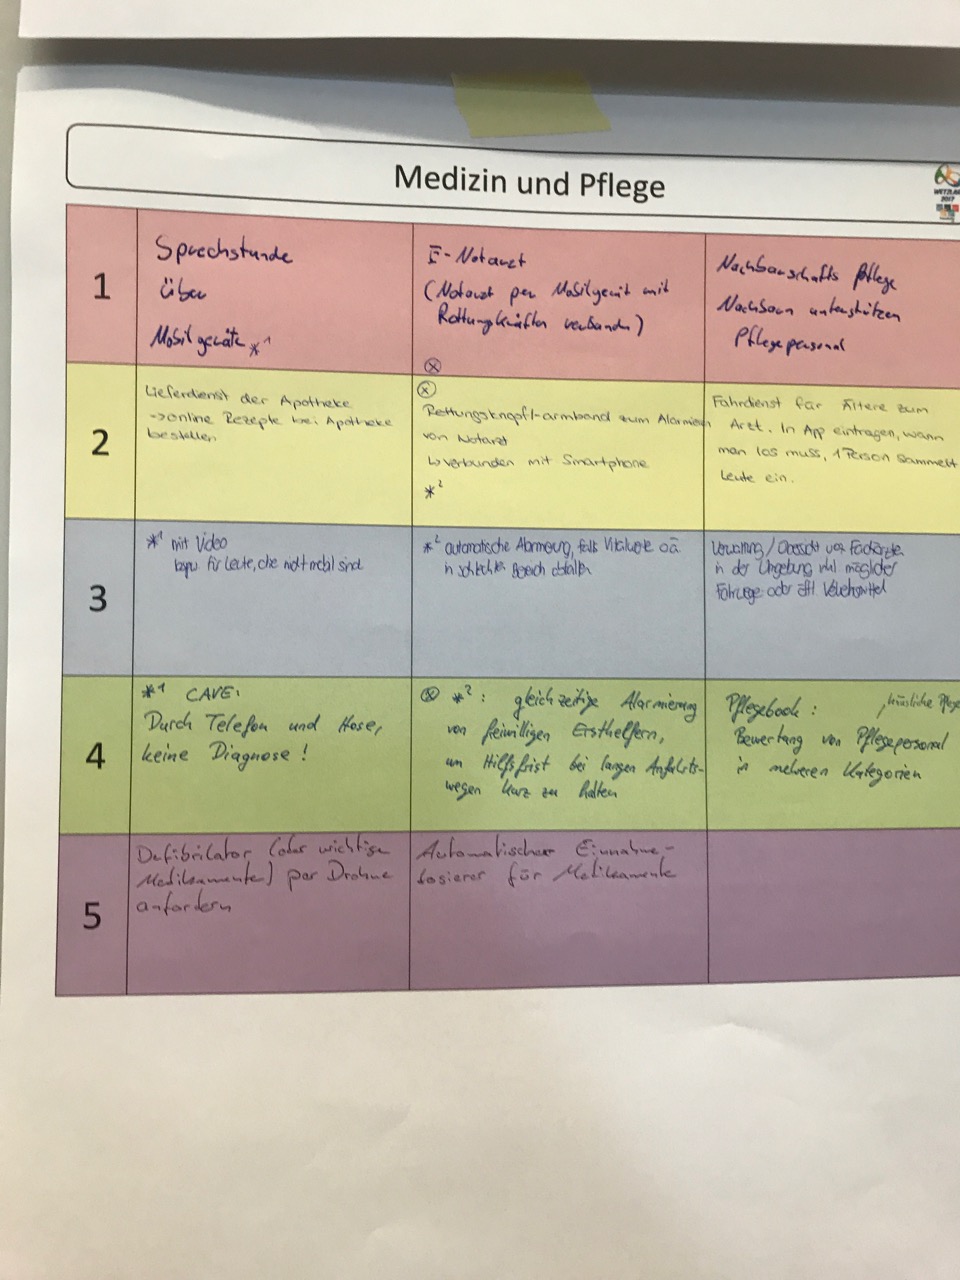 Medizin und Pflege
WETZLAR
2017
1
Sprechstunde
über
Mobilgeräte *1
E-Notarzt
(Notarzt per Mobilgerät mit
Rettungskräften verbunden)
ⓧ
Nachbarschafts Pflege
Nachbarn unterstützen
Pflegepersonal
2
Lieferdienst der Apotheke
→ online Rezepte bei Apotheke
bestellen
ⓧ
Rettungsknopf-armband zum Alarmieren
von Notarzt
↳ verbunden mit Smartphone
*2
Fahrdienst für Ältere zum
Arzt. In App eintragen, wann
man los muss, 1 Person sammelt
Leute ein.
3
*1 mit Video
für Leute, die nicht mobil sind
*2 automatische Alarmierung, falls Vitalwerte oä
in schlechten Bereich abfallen
Verwaltung / Übersicht von Fachärzten
in der Umgebung inkl möglicher
Fahrwege oder öffl. Verkehrsmittel
4
*1 CAVE:
Durch Telefon und Hose,
keine Diagnose!
ⓧ *2: gleichzeitige Alarmierung
von freiwilligen Ersthelfern,
um Hilfsfrist bei langen Anfahrts-
wegen kurz zu halten
Pflegebook: , häusliche Pflege
Bewertung von Pflegepersonal
in mehreren Kategorien
5
Defibrilator (oder wichtige
Medikamente) per Drohne
anfordern
Automatischer Einnahme-
dosierer für Medikamente